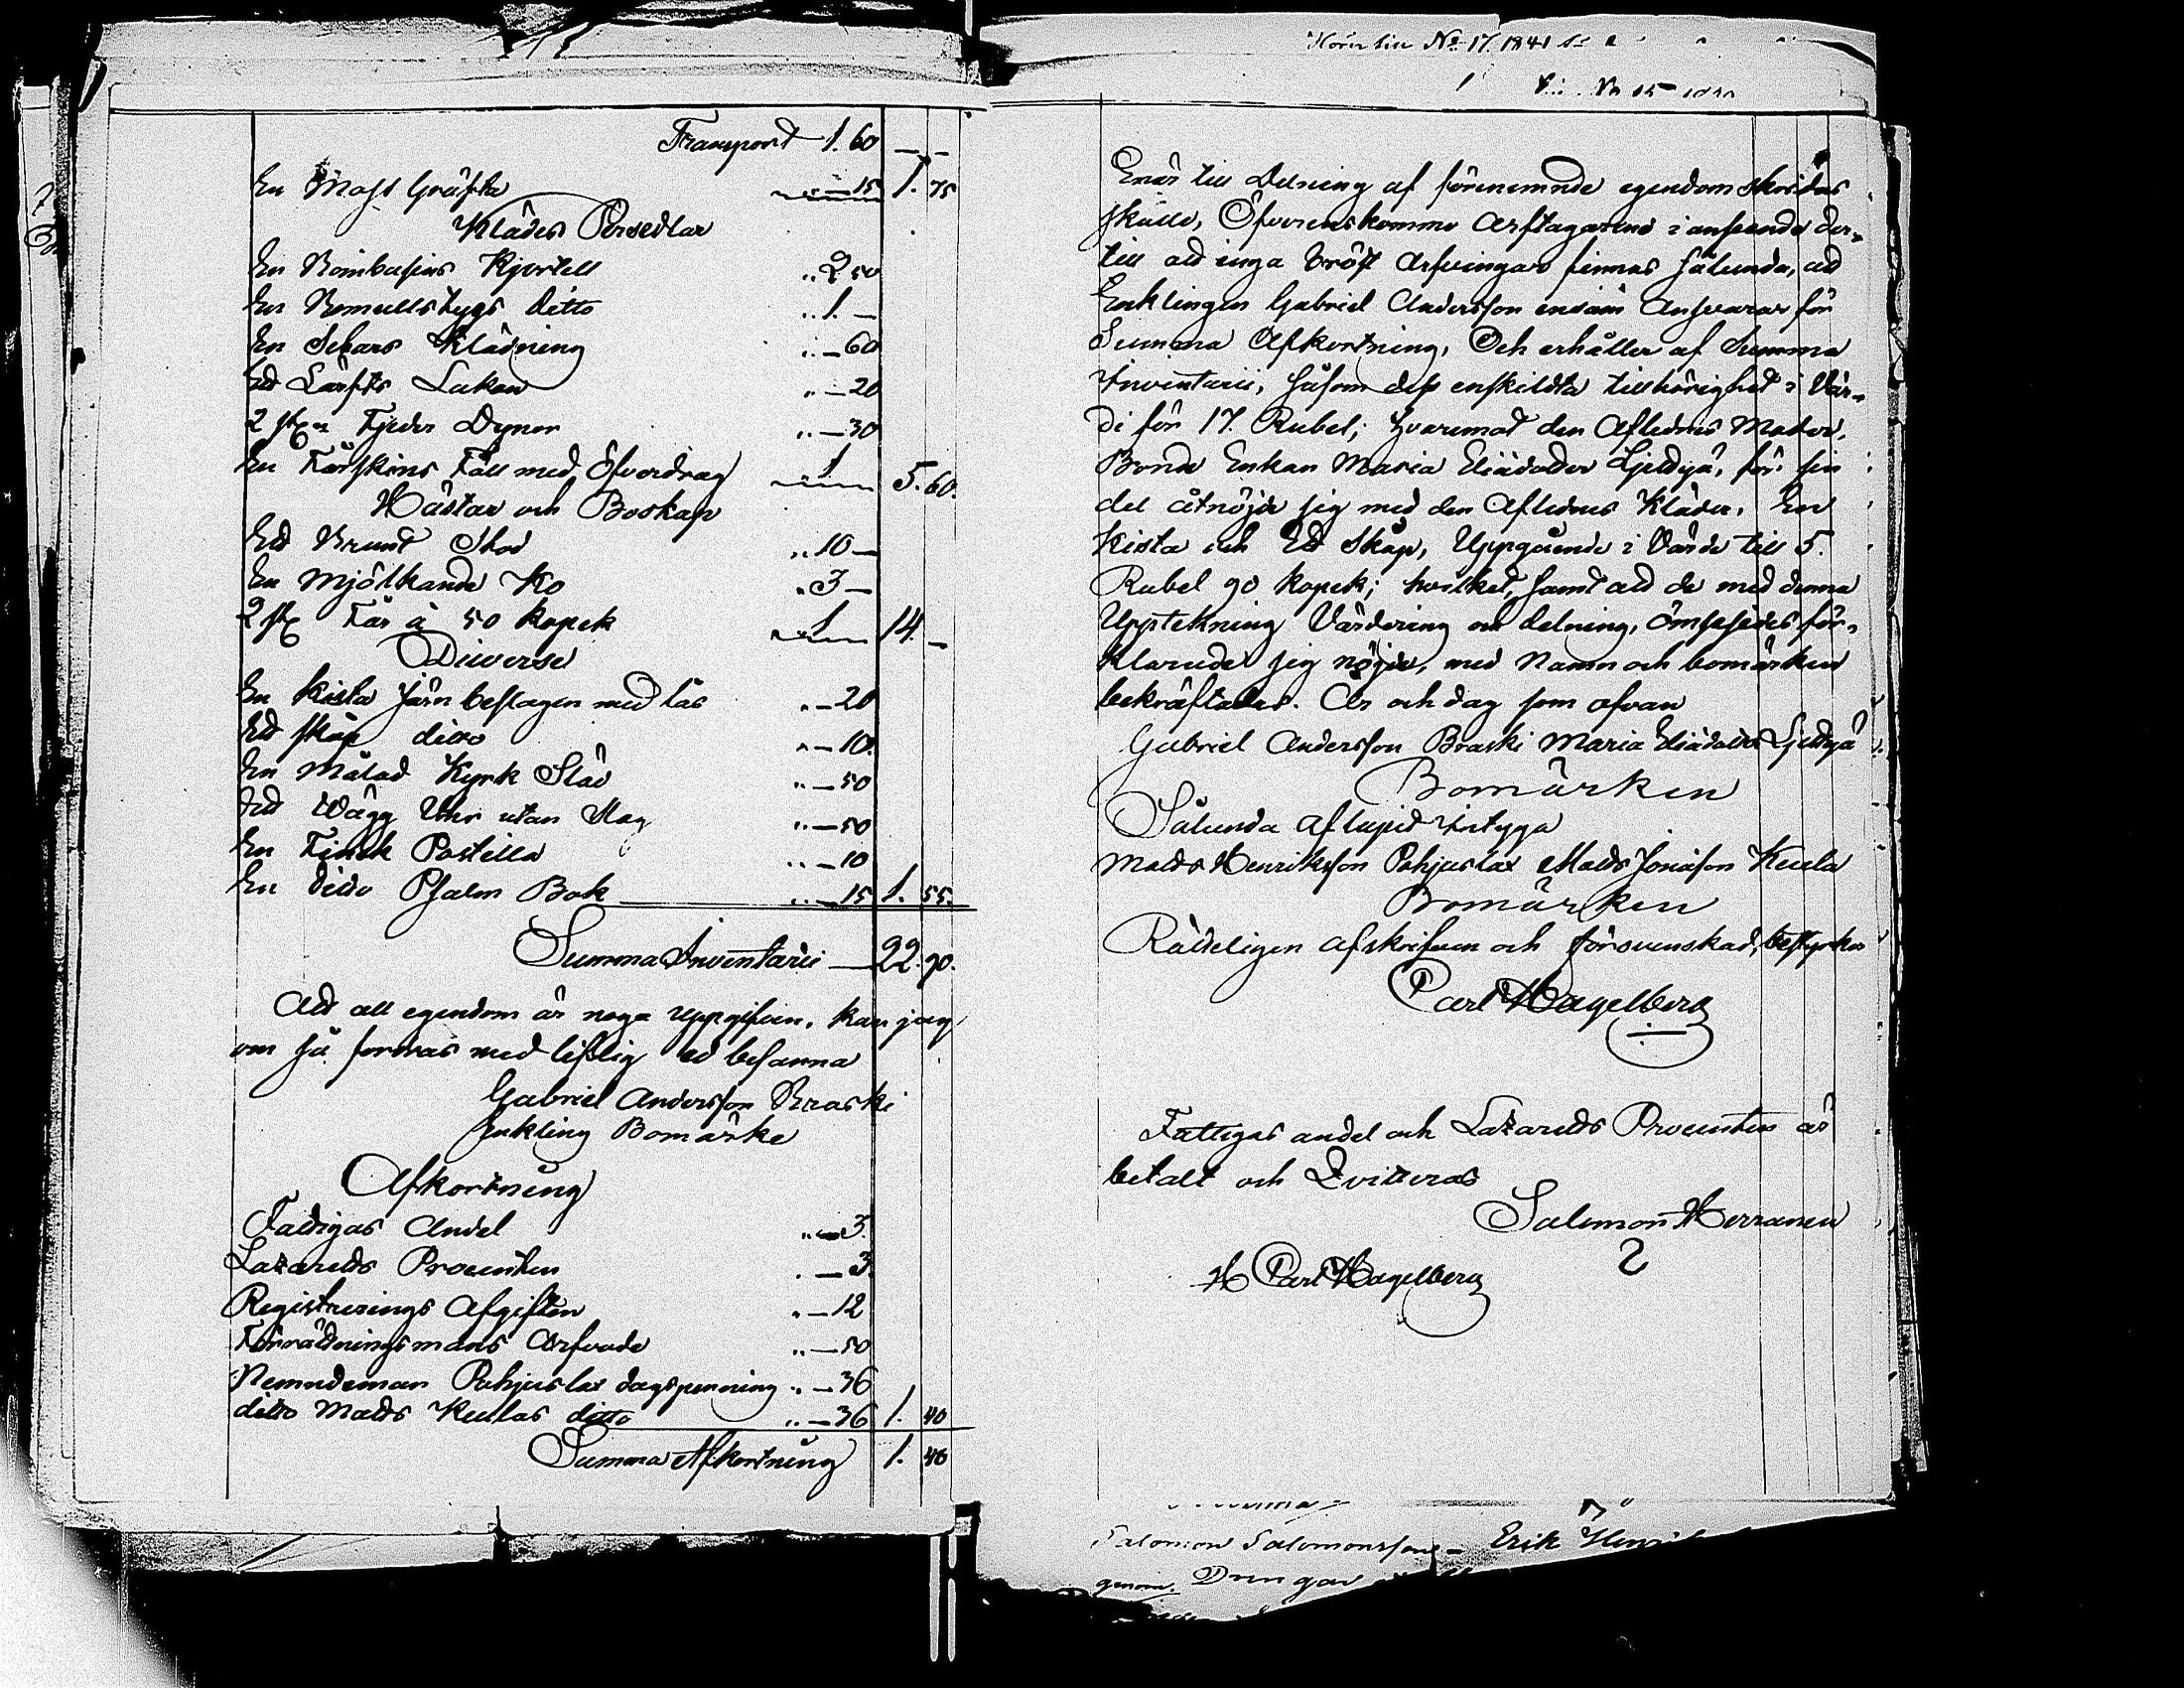 Transport 1. 60 — —
En Mose Gräfta „ — 15 1. 75
Klädes Persedlar
En Bombasins Kjortell „ 2 50
En Bomullstygs ditto „ 1. —
En Klädning „ — 60
Ett Lärfts Lakan „ — 20
2 st Fjeder Dynor „ — 30
En Fårskins Fäll med Öfverdrag 1 5. 60.
Hästar och Boskap
Ett Brunt Stod „ 10 —
En Mjölkande Ko „ 3 —
2 st Får à 50 kopek 1 14. —
Diverse
En Kista Järn beslagen med lås „ — 20
Ett skåp ditto „ — 10.
En Målad Kyrk Släd „ — 50
Ett Wägg Uhr utan Slag „ — 50
En Finsk Postilla „ — 10
En ditto Psalm Bok „ — 15 1. 55.
Summa Inventarii — 22. 90.
Att all egendom är noga uppgifven, kan jag
om så fordras med liflig ed besanna
Gabriel Andersson Braski
Enkling Bomärke
Afkortning
Fattigas Andel „ — 3.
Lazaretts Procenten „ — 3.
Registrerings Afgiften „ — 12
Förrättningsmans Arfvode „ — 50
Nemndeman Pohjuslax dagspenning „ — 36
ditto Matts Keulas ditto „ — 36 1. 40
Summa Afkortning 1. 40
No 17. 1841
Enär till Delning af förenemnde egendom skridas
skulle, Öfverenskommo Arftagarene i anseende der-
till att inga Bröst Arfvingar finnas sålunda, att
Enklingen Gabriel Andersson ensam Ansvarar för
Summa Afkortning, Och erhåller af Summa
Inventarii, såsom dess enskildta tillhörighet i Vär-
de för 17. Rubel; hvaremot den Aflednes Moder,
Bonde Enkan Maria Eliædotter Ljettyä, för sin
del åtnöjde sig med den Aflednes Kläder, En
Kista och Ett Skåp, Uppgående i Värde till 5.
Rubel 90 Kopek; hvilket, samt att de med denna
Upptekning Värdering och delning, ömsesides för-
klarade sig nöjde, med Namn och bomärken
bekräftades. År och dag som ofvan
Gabriel Andersson Braski Maria Eliædotter Ljettyä
Bomärken
Sålunda aflupit intyga
Matts Henriksson Pohjuslax Matts Jonasson Keula
Bomärken
Rätteligen afskrifven och försvenskad, bestyrker
Carl Hagelberg
Fattigas andel och Lazaretts Procenten är
betalt och Qvitteras
Salomon Herranen
H Carl Hagelberg
Salomon Salomonsson — Erik
genom. Drengar